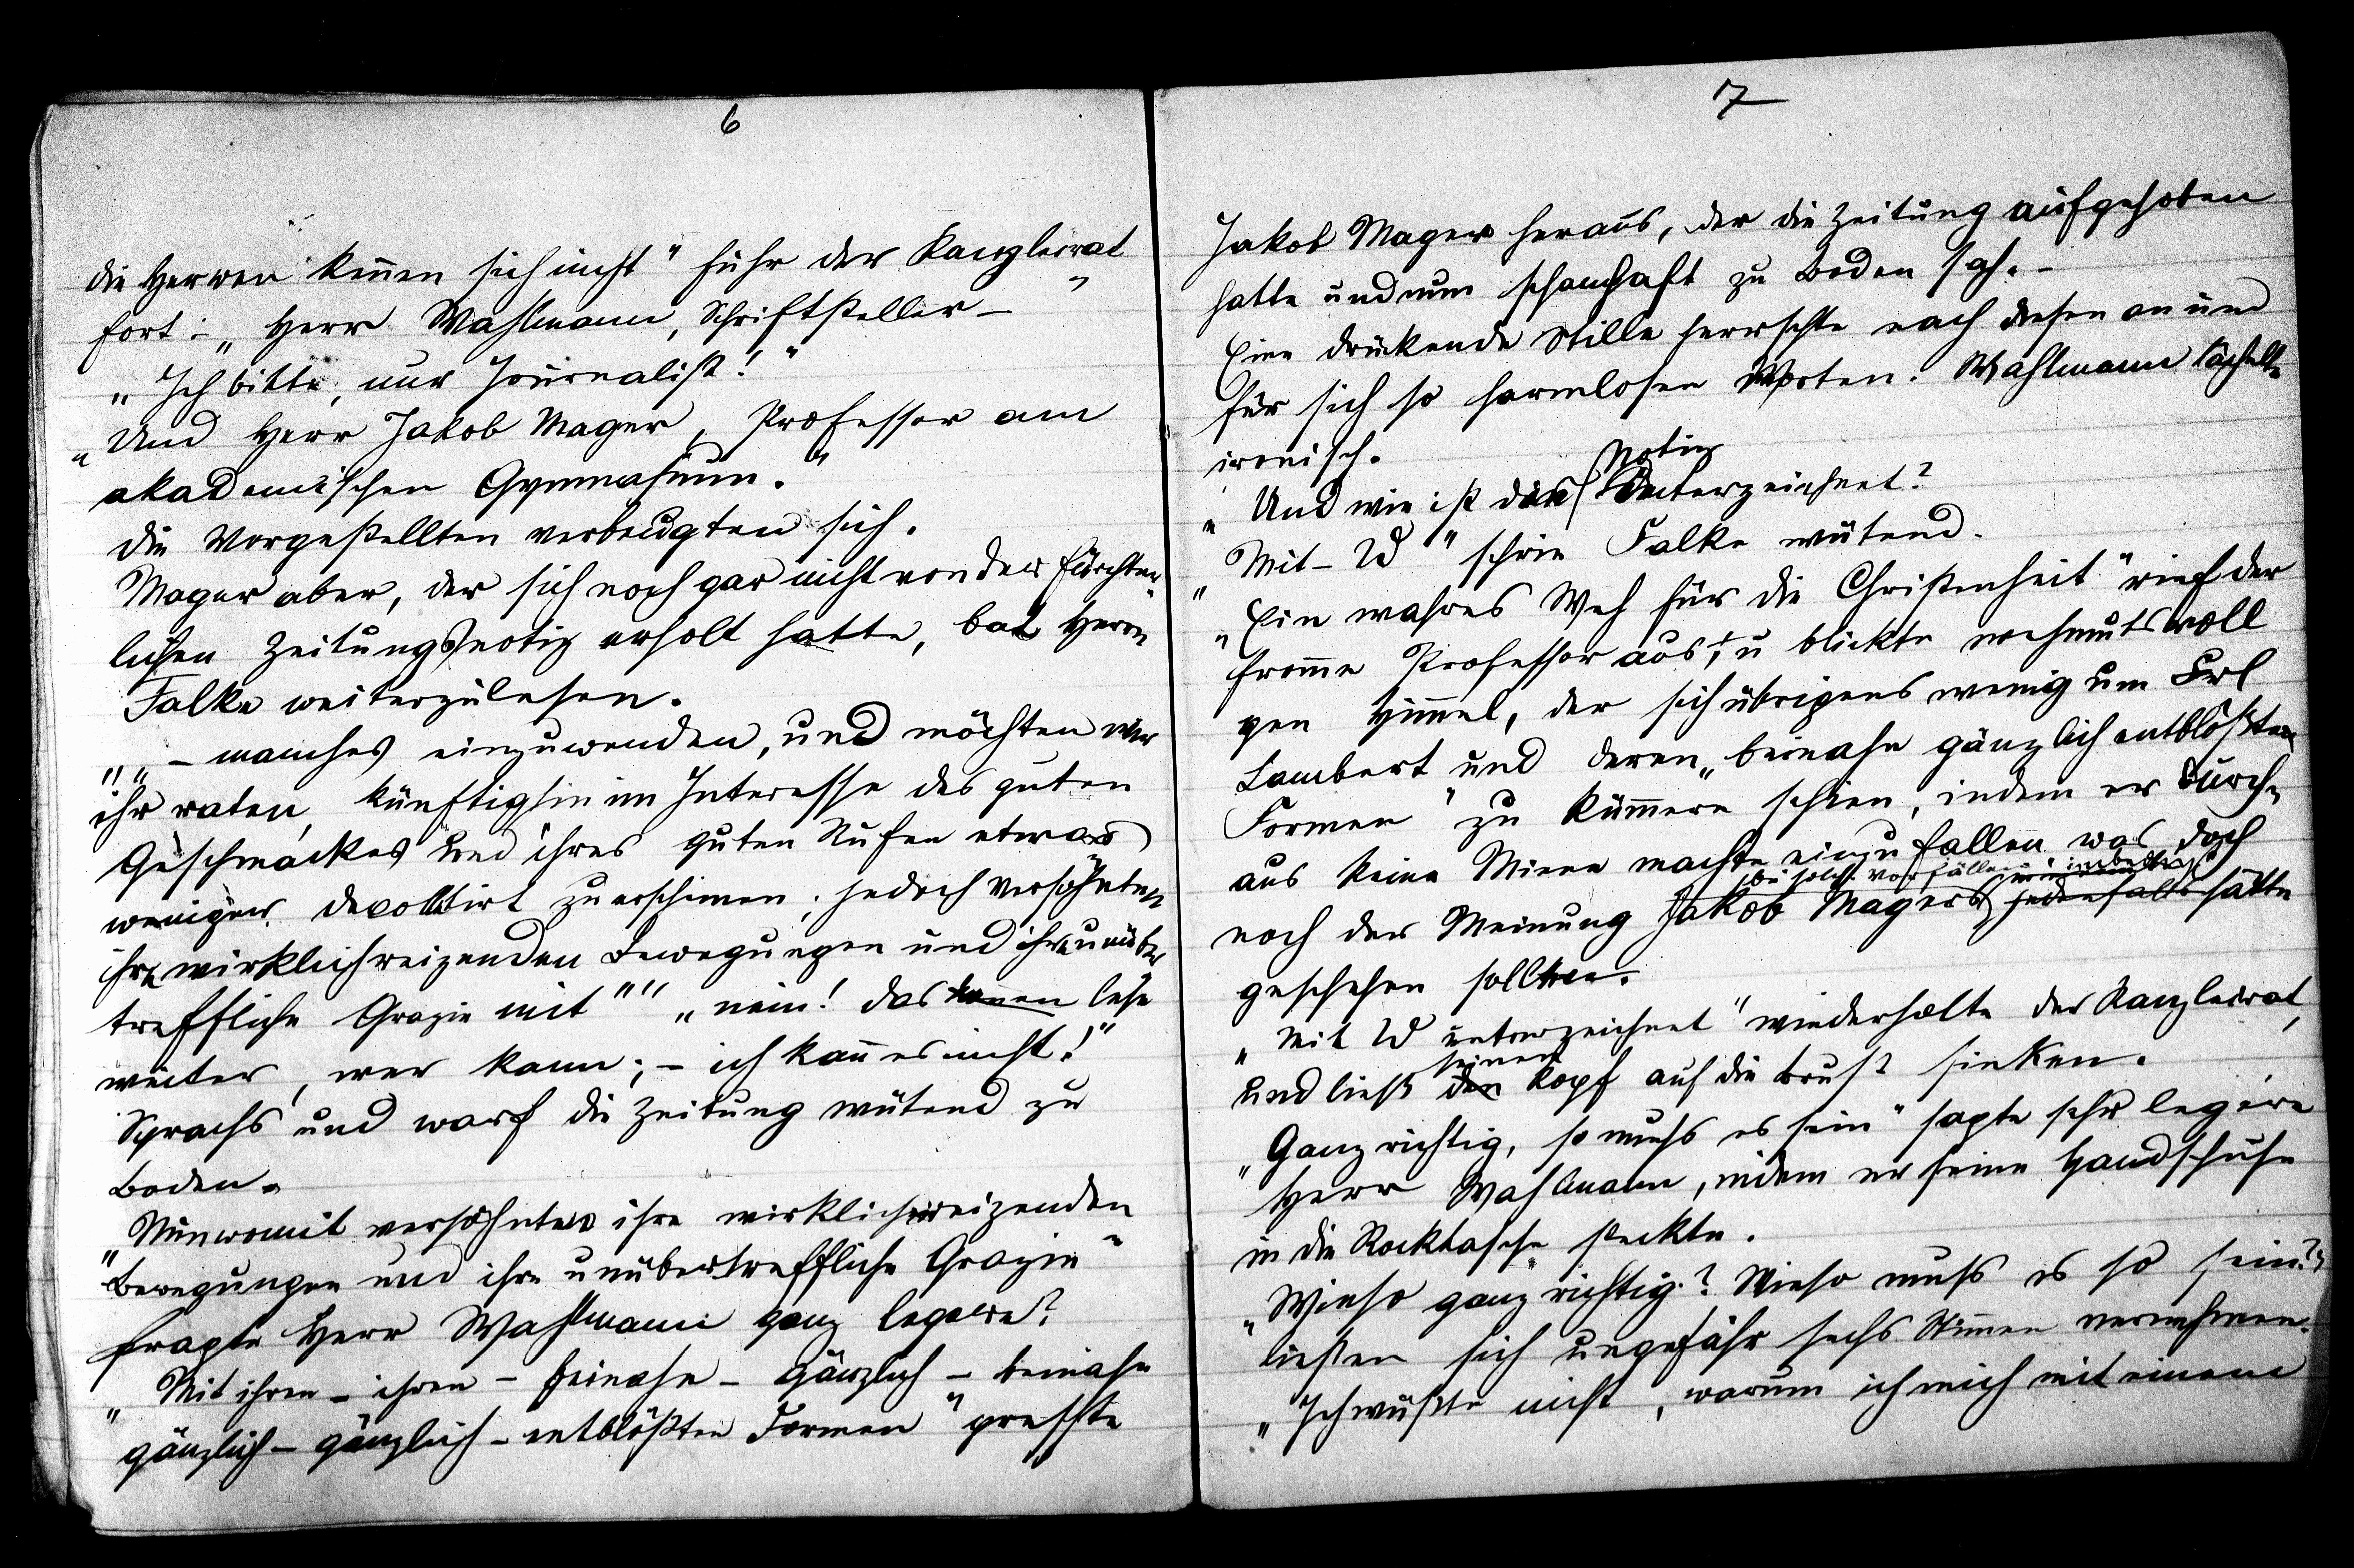 6
die Herren kennen sich nicht" fuhr der Kanzleirat
fort: „Herr Wahlmann, Schriftsteller –"
„Ich bitte, nur Journalist!"
„Und Herr Jakob Mager, Professor am
akademischen Gymnasium."
Die Vorgestellten verbeugten sich.
Mager aber, der sich noch gar nicht von der fürchter-
lichen Zeitungsnotiz erholt hatte, bat Herrn
Falke weiterzulesen.
„„– manches einzuwenden, und möchten wir
ihr raten, künftighin im Interesse des guten
Geschmackes und ihres guten Rufes etwas
weniger decolltirt zu erscheinen; jedoch versöhnten
ihre wirklich reizenden Bewegungen und ihre unüber
treffliche Grazie mit"" „nein! das lese
weiter, wer kann; – ich kann es nicht!"
Sprachs und warf die Zeitung wütend zu
Boden.
„Nun womit versöhnten ihre wirklich reizenden
Bewegungen und ihre unübertreffliche Grazie"
fragte Herr Wahlmann ganz legere?
„Mit ihren – ihren – beinahe – gänzlich – beinahe
gänzlich – gänzlich – entblößten Formen" presste
7
Jakob Mager heraus, der die Zeitung aufgehoben
hatte und nun schamhaft zu Boden sah. –
Eine drückende Stille herrschte nach diesen an und
für sich so harmlosen Worten. Wahlmann lächelte
ironisch.
Notiz
„Und wie ist die unterzeichnet?
„Mit – W" schrie Falke wütend.
„Ein wahres Weh für die Christenheit" rief der
fromme Professor aus, u blickte wehmutsvoll
gen Himmel, der sich übrigens wenig um Frl
Lambert und deren „beinahe gänzlich entblößten
Formen" zu kümmern schien, indem er durch-
aus keine Miene machte einzufallen was doch
bei solch. Vorfällen unbedingt
noch der Meinung Jakob Magers jedenfalls hätte
geschehen sollen.
„Mit W unterzeichnet" wiederholte der Kanzleirat,
seinen
und ließ den Kopf auf die Brust sinken.
„Ganz richtig, so muss es sein" sagte sehr legère
Herr Wahlmann, indem er seine Handschuhe
in die Rocktasche steckte.
„Wieso ganz richtig? Wieso muss es so sein?"
ließen sich ungefähr sechs Stimmen vernehmen.
„Ich wüßte nicht, warum ich mich mit einem